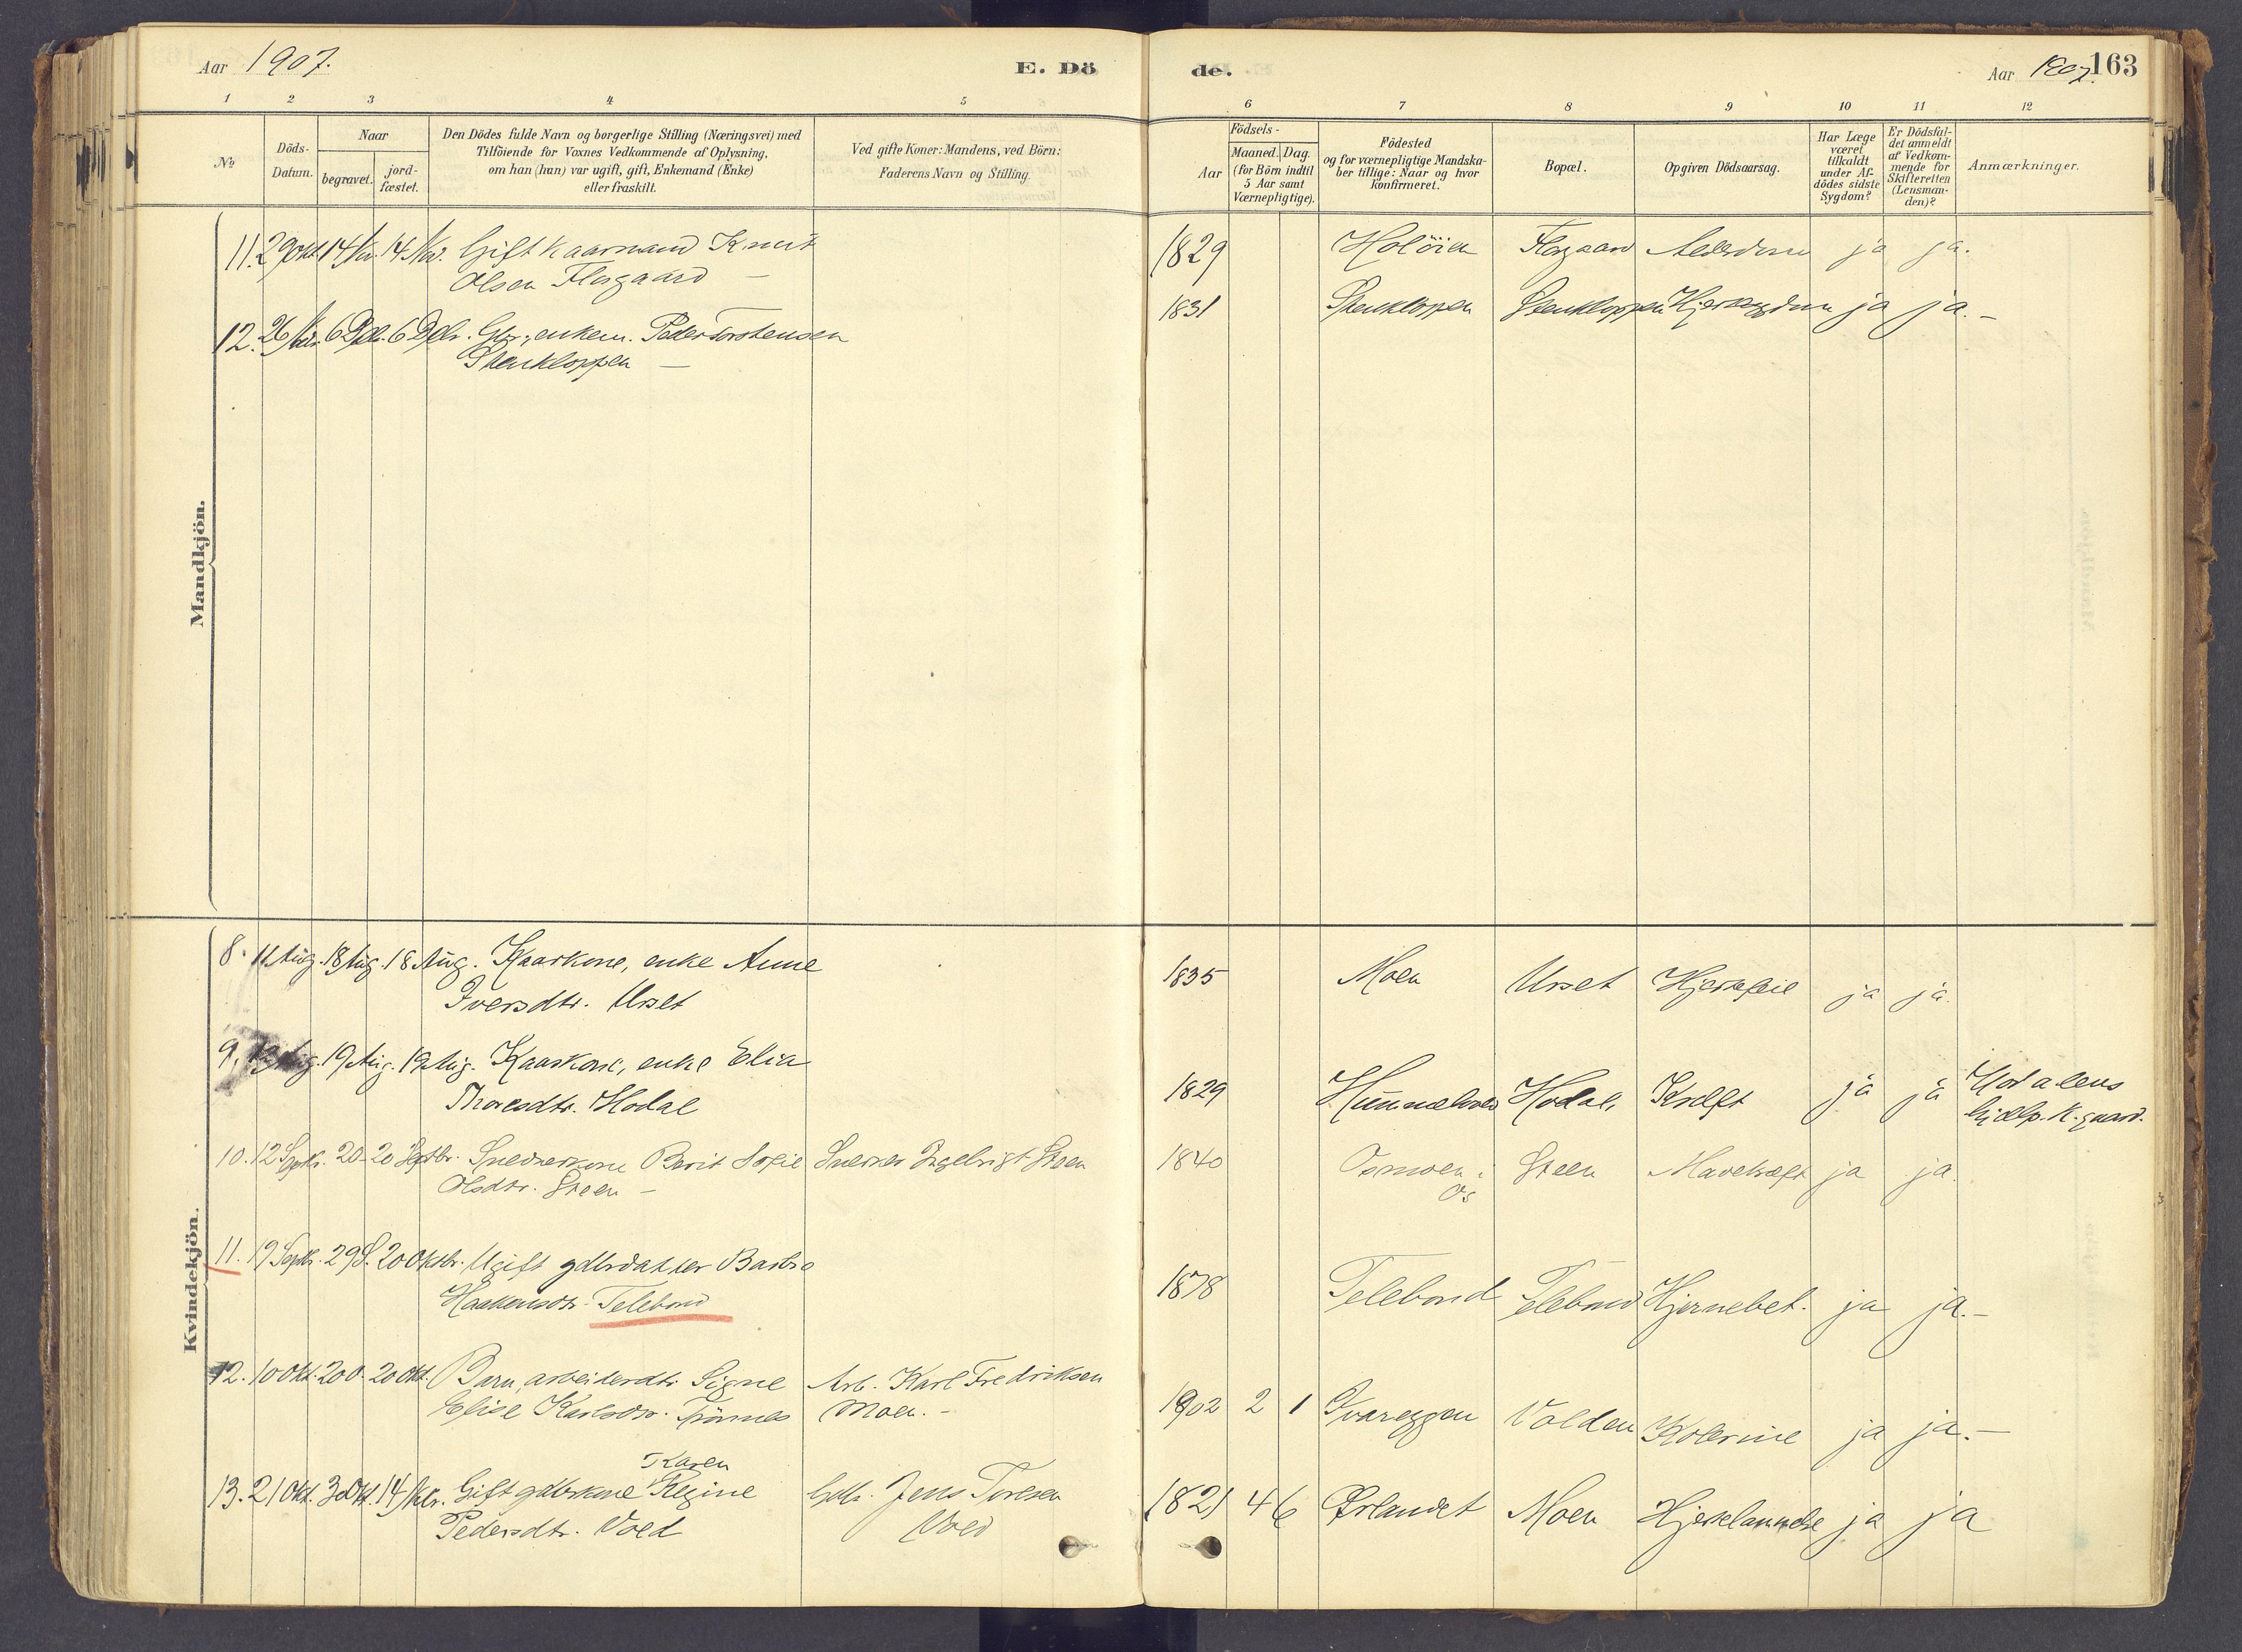 Aar 1907.
E. Dö
1 2 3 4 5
No
Döds-Datum.
Naar
begravet.
jord-fæstet.
Den Dödes fulde Navn og borgerlige Stilling (Næringsvei) med
Tilföiende for Voxnes Vedkommende af Oplysning,
om han (hun) var ugift, gift, Enkemand (Enke)
eller fraskilt.
Ved gifte Koner: Mandens, ved Börn:
Faderens Navn og Stilling.
Mandkjön.
11. 29 Okt. 14 Nv. 14 Nv. Gift Kaarmand Knut
Olsen Florgaard –
12. 26 Nv. 6 Dcbr. 6 Dcbr. Gbr., enkem. Peder Torstensen
Stenkloppen –
Kvindekjön.
8. 11 Aug. 18 Aug. 18 Aug. Kaarkone, enke Anne
Iversdtr. Urset
9. 13 Aug. 19 Aug. 19 Aug. Kaarkone, enke Elia
Thoresdtr. Hodal
10. 12 Septbr. 20 - 20 Septbr. Snedkerkone Berit Sofie Snedker Ingebrigt Steen
Olsdtr. Steen –
11. 19 Septbr. 29 S. 20 Oktbr. Ugift gdbrdatter Barbro
Haakensdtr. Telebond
12. 10 Okt. 20 O. 20 Okt. Barn, arbeiderdtr. Signe Arb. Karl Fredriksen
Elise Karlsdtr. Moen. –
Karen
13. 21 Okt. 30 Okt. 14 Nvbr. Gift gdbrkone Regine Gdb. Jens Toresen
Pedersdtr. Vold Vold
de.
Aar 1907. 163
6 7 8 9 10 11 12
Födsels-
Aar
Maaned. Dag.
(for Börn indtil
5 Aar samt
Værnepligtige).
Födested
og for værnepligtige Mandska-
ber tillige: Naar og hvor
konfirmeret.
Bopæl.
Opgiven Dödsaarsag.
Har Læge
været
tilkaldt
under Af-
dödes sidste
Sygdom?
Er Dödsfal-
det anmeldt
af Vedkom-
mende for
Skifteretten
(Lensman-
den)?
Anmærkninger.
1829 Holöien Florgaard Alderdom ja ja.
1831 Stenkloppen Stenkloppen Hjertesygdom ja ja. –
1835 Moen Urset Hjertefeil ja ja.
1829 Hummelvold Hodal, Kræft ja ja Hodalens
hjælp. k.gaard.
1840 Osmoen i Steen Mavekræft ja ja.
Os
1878 Telebond Telebond Hjernebet. ja ja. –
1902 2 1 Kvareggen Volden Kolerine ja ja. –
1821 4 6 Ørlandet Moen Hjertelammelse ja ja